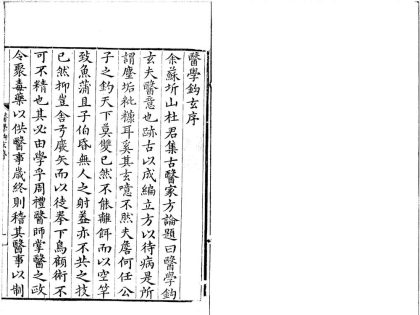 醫學鉤玄序
余蘇圻山杜君集古醫家方論題曰醫學鉤
玄夫醫意也跡古以成編立方以待病是所
謂塵垢粃糠耳奚其玄噫不然夫詹何任公
子之釣天下莫雙已然不能離餌而以空竿
致魚蒲且子伯昏無人之射益亦不共之技
已然抑豈舍弓廢矢而以徒拳下鳥顧術不
可不精也其必由學乎周禮醫師掌醫之政
令聚毒藥以供醫事歲終則稽其醫事以制